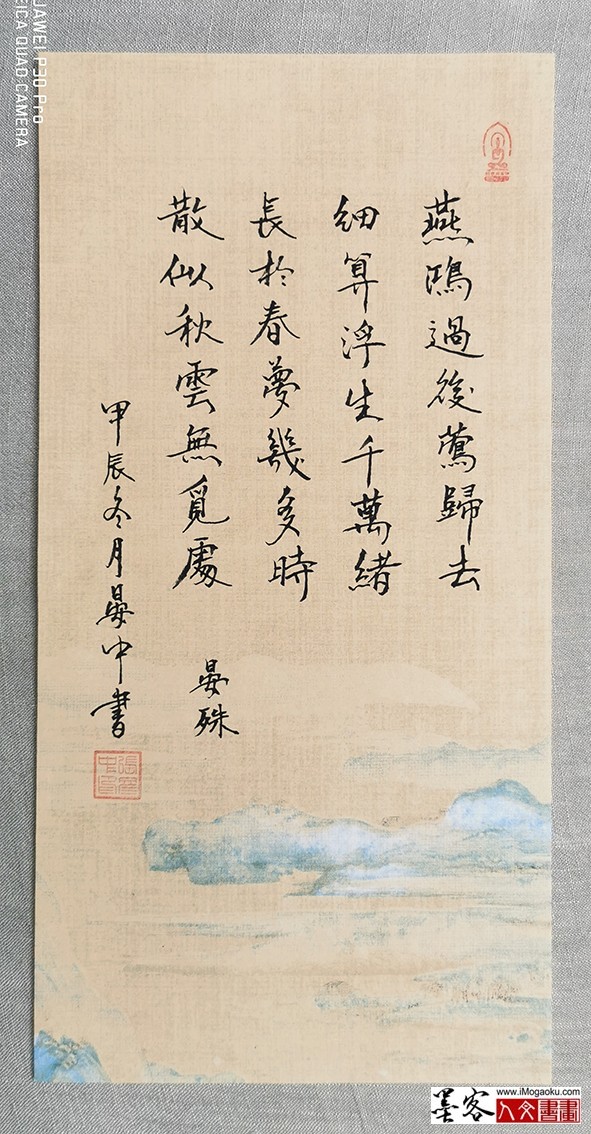 燕鴻過後鶯歸去
細算浮生千萬緒
長於春夢幾多時
散似秋雲無覓處
晏殊
甲辰冬月晏中書
HUAWEI P30 Pro
LEICA QUAD CAMERA
墨客
www.iMogaoku.com
人文書畫